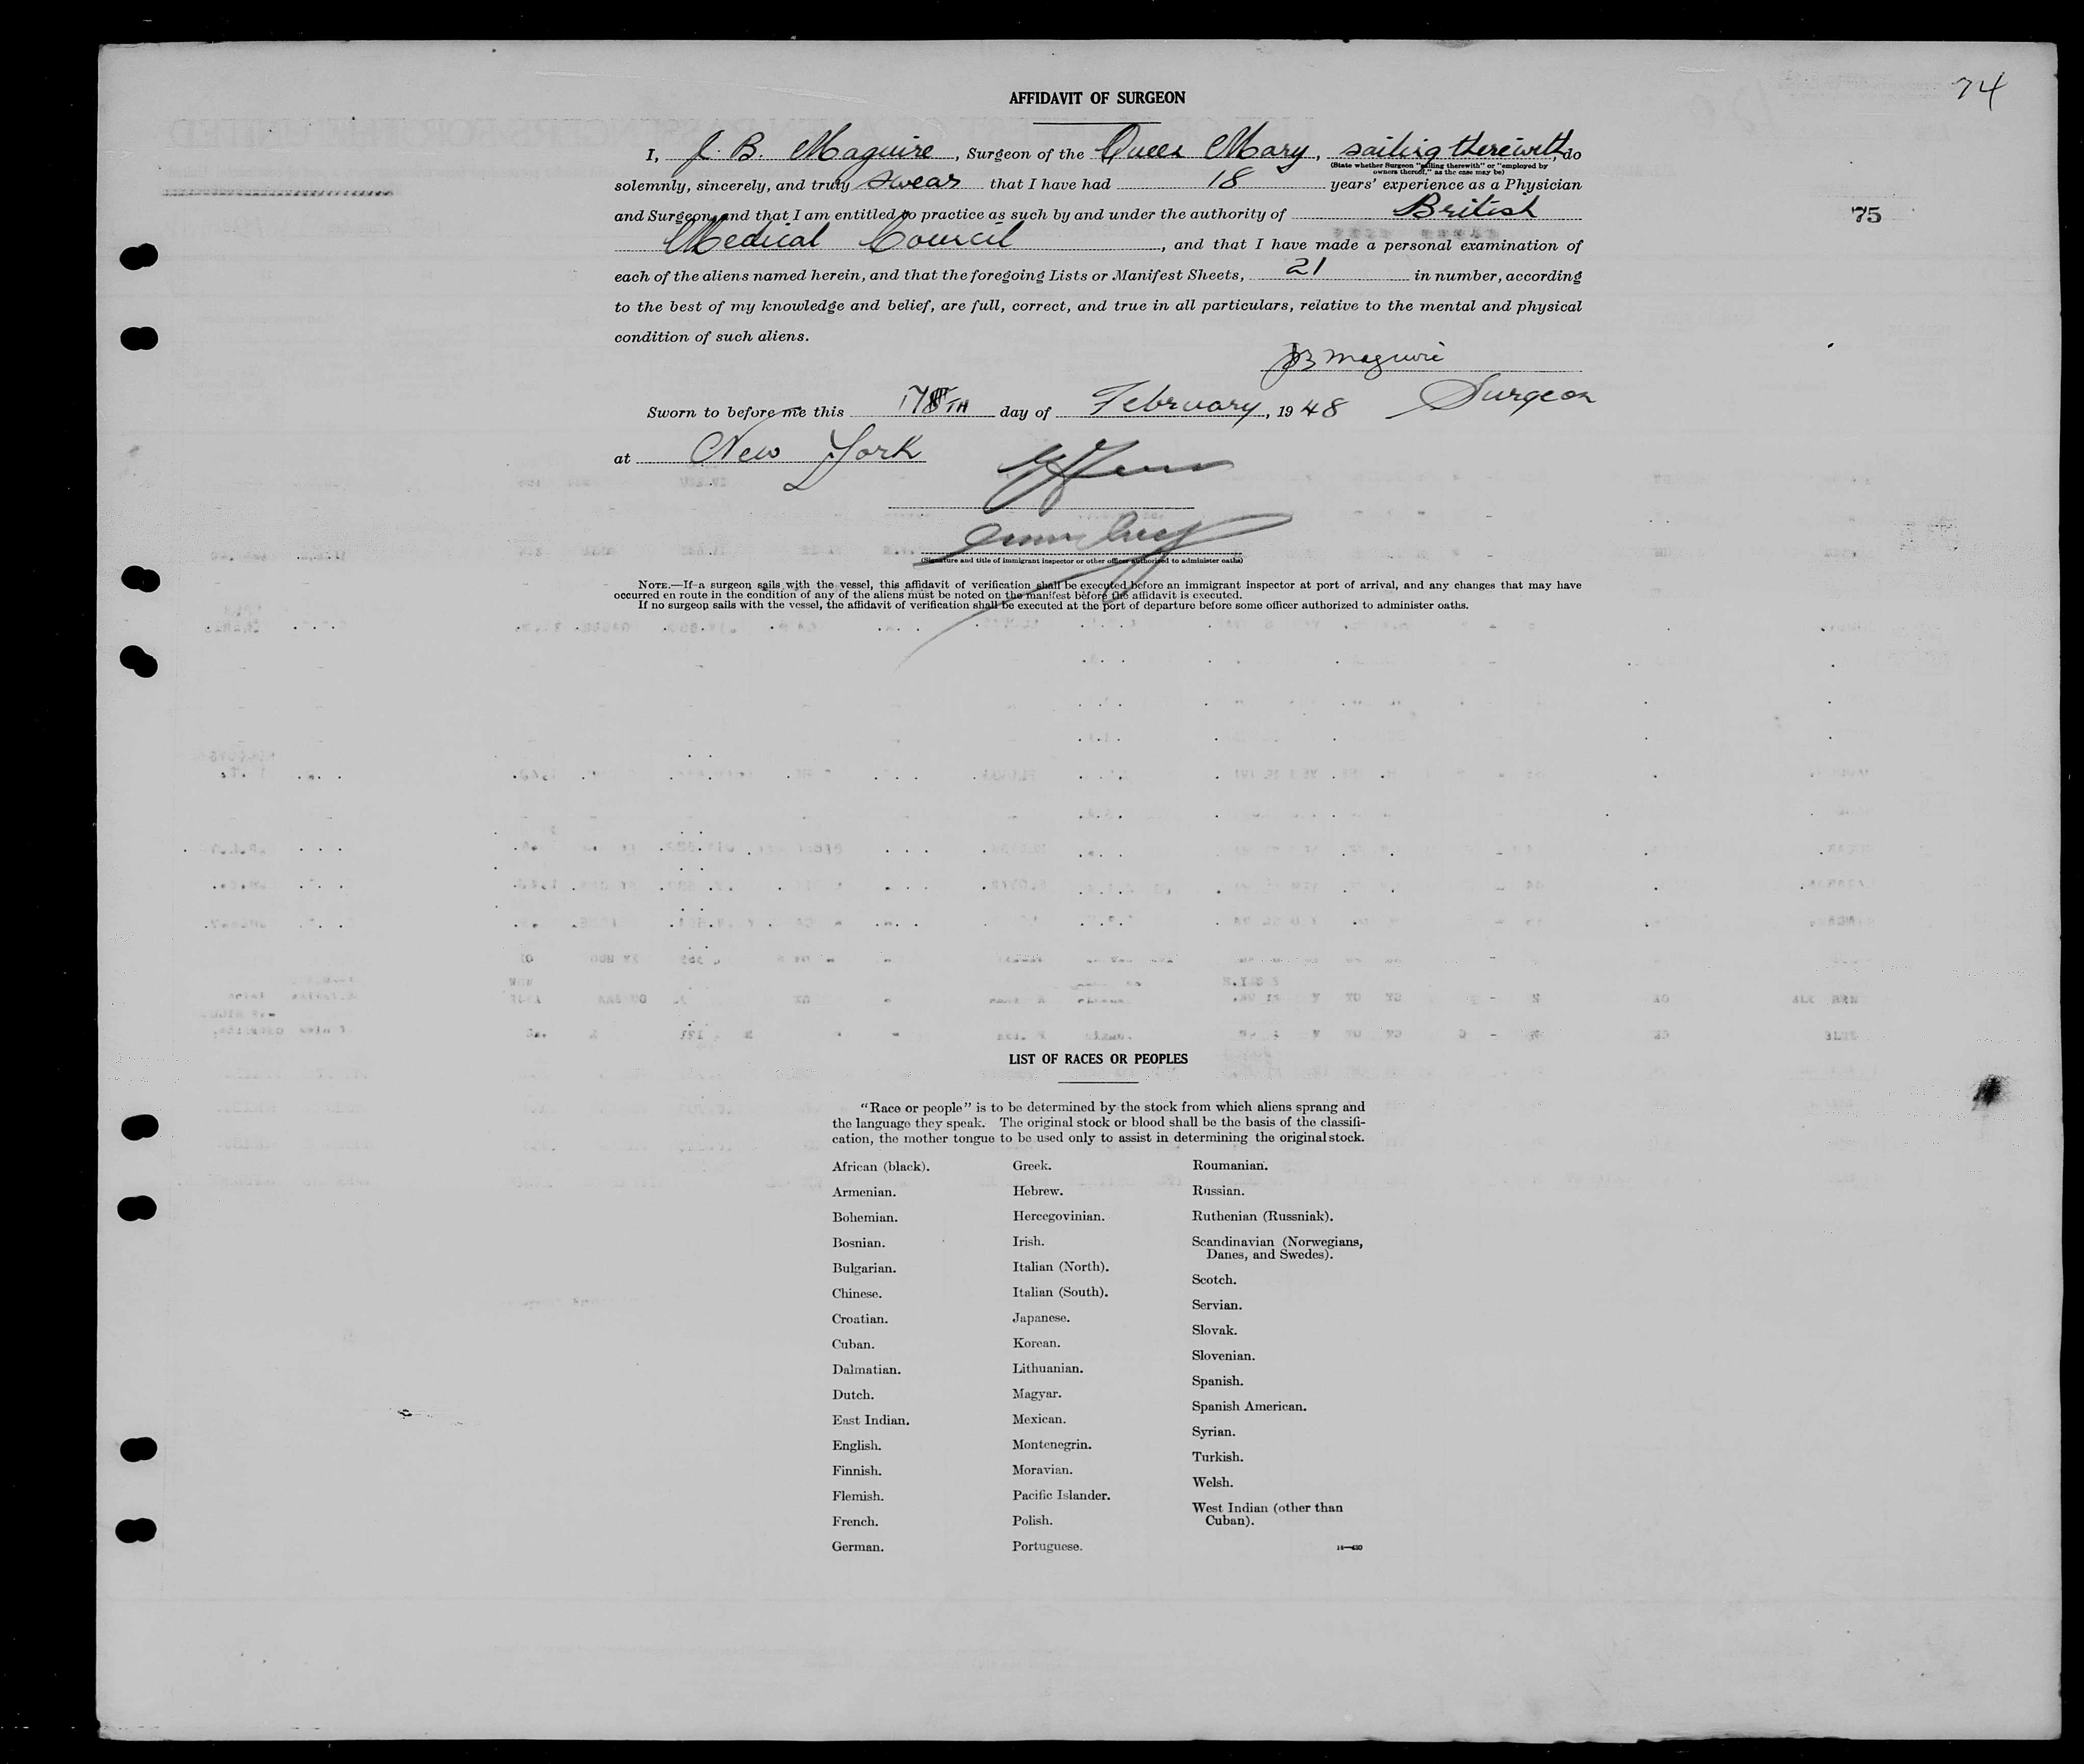 74
AFFIDAVIT OF SURGEON
I, J. B. Maguire, Surgeon of the Queen Mary, sailing therewith, do
(State whether Surgeon "sailing therewith" or "employed by
owners thereof," as the case may be)
solemnly, sincerely, and truly swear that I have had 18 years' experience as a Physician
and Surgeon, and that I am entitled to practice as such by and under the authority of British
75
Medical Council, and that I have made a personal examination of
each of the aliens named herein, and that the foregoing Lists or Manifest Sheets, 21 in number, according
to the best of my knowledge and belief, are full, correct, and true in all particulars, relative to the mental and physical
condition of such aliens.
JB Maguire
Sworn to before me this TH day of February, 1948 Surgeon
at New York
(Signature and title of immigrant inspector or other officer authorized to administer oaths)
NOTE.—If a surgeon sails with the vessel, this affidavit of verification shall be executed before an immigrant inspector at port of arrival, and any changes that may have
occurred en route in the condition of any of the aliens must be noted on the manifest before the affidavit is executed.
If no surgeon sails with the vessel, the affidavit of verification shall be executed at the port of departure before some officer authorized to administer oaths.
LIST OF RACES OR PEOPLES
"Race or people" is to be determined by the stock from which aliens sprang and
the language they speak. The original stock or blood shall be the basis of the classifi-
cation, the mother tongue to be used only to assist in determining the original stock.
African (black).
Armenian.
Bohemian.
Bosnian.
Bulgarian.
Chinese.
Croatian.
Cuban.
Dalmatian.
Dutch.
East Indian.
English.
Finnish.
Flemish.
French.
German.
Greek.
Hebrew.
Hercegovinian.
Irish.
Italian (North).
Italian (South).
Japanese.
Korean.
Lithuanian.
Magyar.
Mexican.
Montenegrin.
Moravian.
Pacific Islander.
Polish.
Portuguese.
Roumanian.
Russian.
Ruthenian (Russniak).
Scandinavian (Norwegians,
Danes, and Swedes).
Scotch.
Servian.
Slovak.
Slovenian.
Spanish.
Spanish American.
Syrian.
Turkish.
Welsh.
West Indian (other than
Cuban).